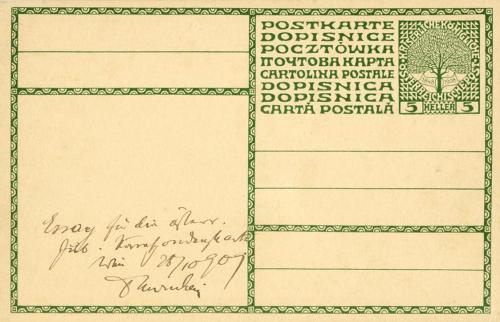 POSTKARTE
DOPISNICE
POCZTÓWKA
ПОЧТОВА КАРТА
CARTOLINA POSTALE
DOPISNICA
DOPISNICA
CARTĂ POSTALĂ
5 HELLER 5
für die österr.
Korrespondenzkarte
Wien 28/10 907